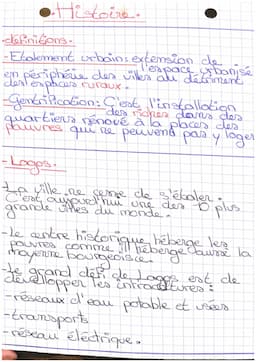 Histoire.
-définitions-
-Etalement urbain: extension de
l'espace urbanisé
en périphérie des villes au détriment
des espaces ruraux.
-Gentrification: C'est l'installation
des riches dans des
quartiers rénové à la places des
pauvres qui ne peuvent pas y loger
-Lagos.-
-La ville ne cesse de s'étaler.
C'est aujourd'hui une des 10 plus
grande villes du monde.
-le centre historique héberge les
pauvres comme il héberge aussi la
moyenne bourgeoisie.
-le grand défi de Lagos est de
développer les infractures:
-réseaux d'eau potable et usées
-transports
-réseau électrique.